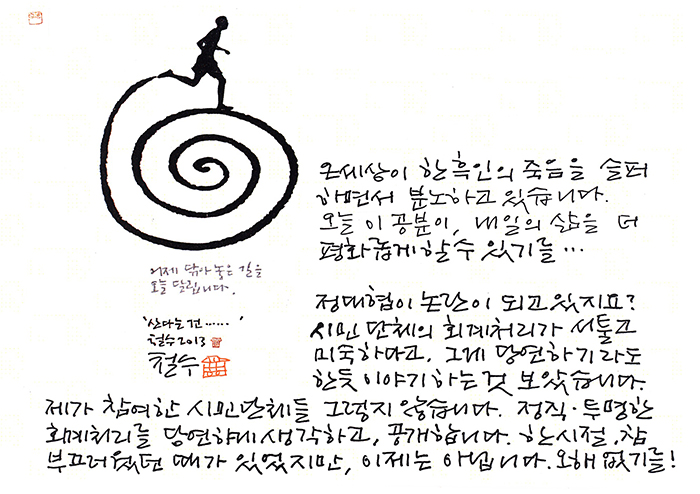 어제 닦아 놓은 길을
오늘 달립니다.
'산다는 건……'
철수 2013
철수
온세상이 한 흑인의 죽음을 슬퍼
하면서 분노하고 있습니다.
오늘 이 공분이, 내일의 삶을 더
평화롭게 할 수 있기를…
정대협이 논란이 되고 있지요?
시민 단체의 회계처리가 서툴고
미숙하다고. 그게 당연하기라도
한듯 이야기하는 것 보았습니다.
제가 참여한 시민단체들 그렇지 않습니다. 정직·투명한
회계처리를 당연하게 생각하고, 공개합니다. 한시절, 참
부끄러웠던 때가 있었지만, 이제는 아닙니다. 오해 없기를!